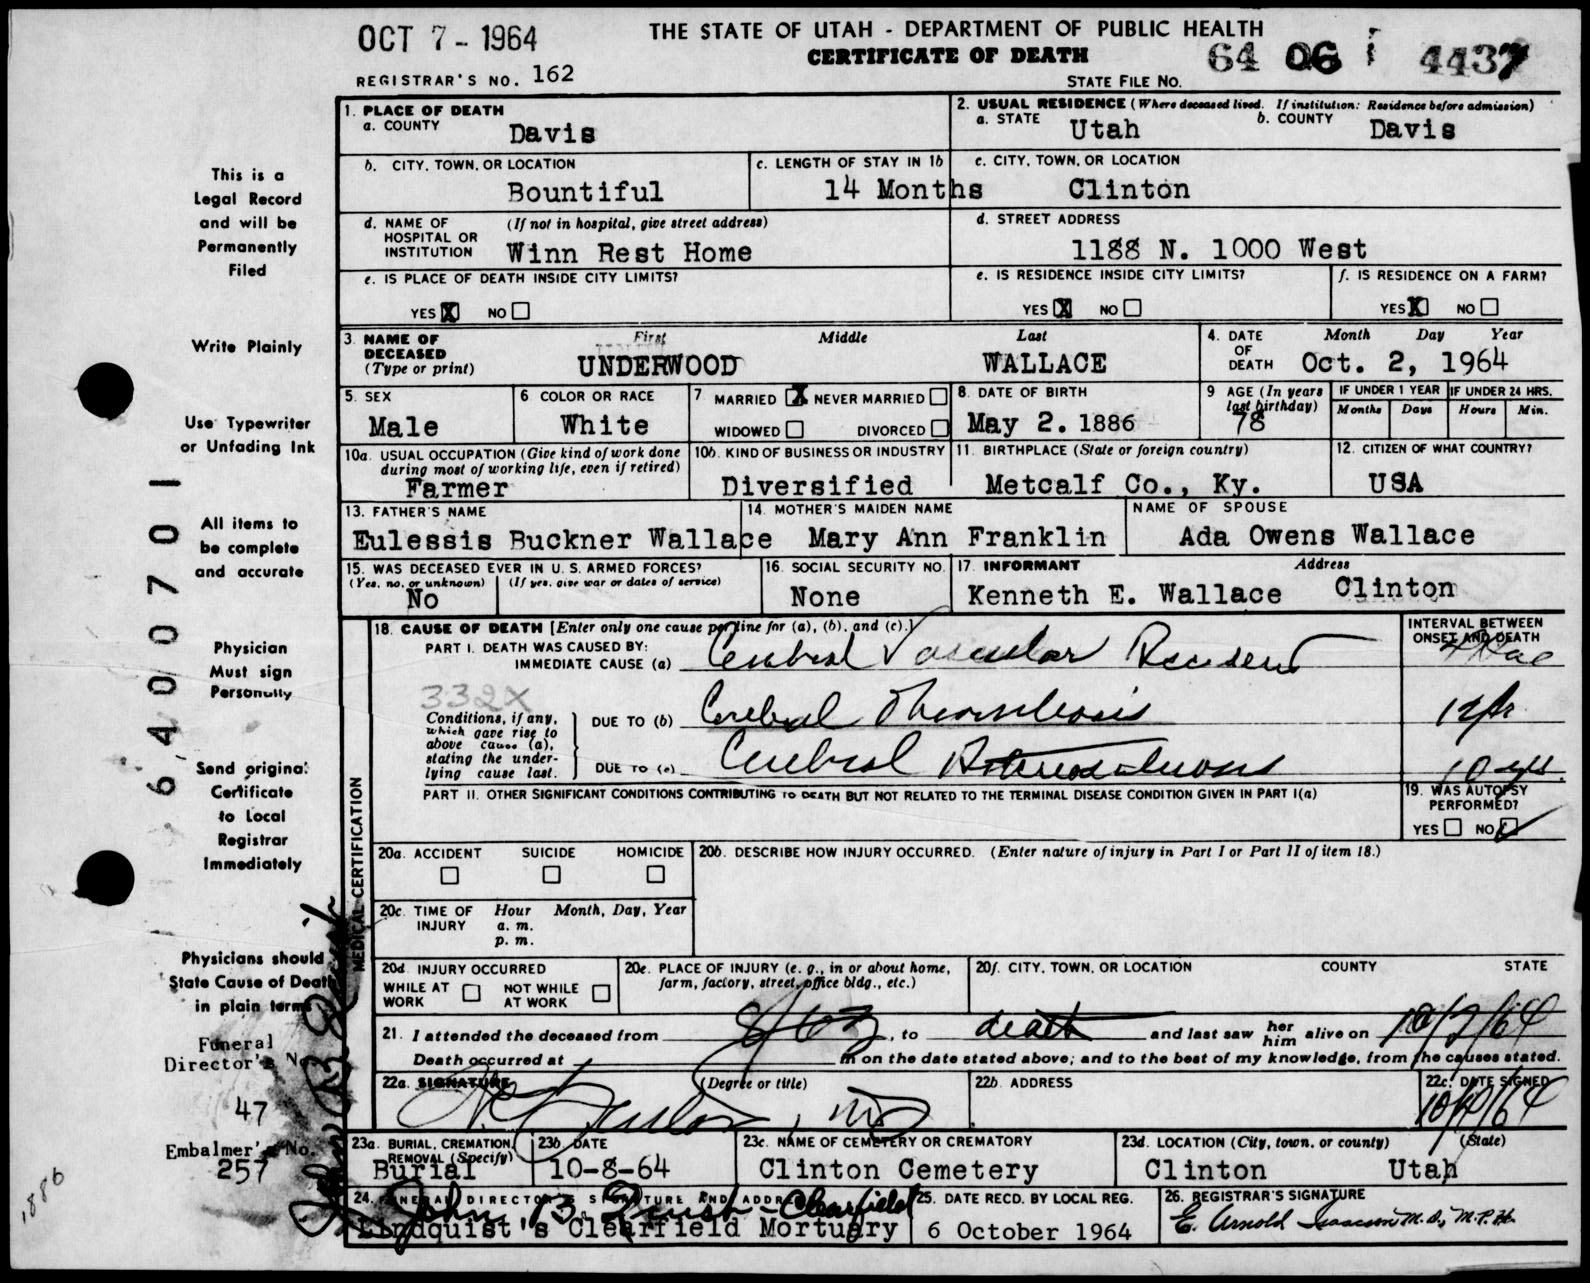 OCT 7 - 1964
THE STATE OF UTAH - DEPARTMENT OF PUBLIC HEALTH
CERTIFICATE OF DEATH
64 06 4437
REGISTRAR'S NO. 162
STATE FILE NO.
This is a
Legal Record
and will be
Permanently
Filed
Write Plainly
Use Typewriter
or Unfading Ink
All items to
be complete
and accurate
Physician
Must sign
Personally
Send original
Certificate
to Local
Registrar
Immediately
Physicians should
State Cause of Death
in plain terms
Funeral
Director's No.
47
Embalmer's No.
257
1886
6400701
1. PLACE OF DEATH
a. COUNTY
Davis
2. USUAL RESIDENCE (Where deceased lived. If institution: Residence before admission)
a. STATE
Utah
b. COUNTY
Davis
b. CITY, TOWN, OR LOCATION
Bountiful
c. LENGTH OF STAY IN 1b
14 Months
c. CITY, TOWN, OR LOCATION
Clinton
d. NAME OF HOSPITAL OR INSTITUTION
(If not in hospital, give street address)
Winn Rest Home
d. STREET ADDRESS
1188 N. 1000 West
e. IS PLACE OF DEATH INSIDE CITY LIMITS?
YES X NO
e. IS RESIDENCE INSIDE CITY LIMITS?
YES X NO
f. IS RESIDENCE ON A FARM?
YES X NO
3. NAME OF DECEASED (Type or print)
First Middle Last
UNDERWOOD WALLACE
4. DATE OF DEATH
Month Day Year
Oct. 2, 1964
5. SEX
Male
6 COLOR OR RACE
White
7 MARRIED X NEVER MARRIED
WIDOWED DIVORCED
8. DATE OF BIRTH
May 2. 1886
9 AGE (In years last birthday)
78
IF UNDER 1 YEAR
Months Days
IF UNDER 24 HRS.
Hours Min.
10a. USUAL OCCUPATION (Give kind of work done during most of working life, even if retired)
Farmer
10b. KIND OF BUSINESS OR INDUSTRY
Diversified
11. BIRTHPLACE (State or foreign country)
Metcalf Co., Ky.
12. CITIZEN OF WHAT COUNTRY?
USA
13. FATHER'S NAME
Eulessis Buckner Wallace
14. MOTHER'S MAIDEN NAME
Mary Ann Franklin
NAME OF SPOUSE
Ada Owens Wallace
15. WAS DECEASED EVER IN U. S. ARMED FORCES?
(Yes, no, or unknown) (If yes, give war or dates of service)
No
16. SOCIAL SECURITY NO.
None
17. INFORMANT Address
Kenneth E. Wallace Clinton
MEDICAL CERTIFICATION
18. CAUSE OF DEATH [Enter only one cause per line for (a), (b), and (c).]
INTERVAL BETWEEN ONSET AND DEATH
PART I. DEATH WAS CAUSED BY:
IMMEDIATE CAUSE (a) Cerebral Vascular Accident
332X
Conditions, if any, which gave rise to above cause (a), stating the underlying cause last.
DUE TO (b) Cerebral Thrombosis
DUE TO (c) Cerebral Arteriosclerosis
10 yrs.
PART II. OTHER SIGNIFICANT CONDITIONS CONTRIBUTING TO DEATH BUT NOT RELATED TO THE TERMINAL DISEASE CONDITION GIVEN IN PART I(a)
19. WAS AUTOPSY PERFORMED?
YES NO
20a. ACCIDENT SUICIDE HOMICIDE
20b. DESCRIBE HOW INJURY OCCURRED. (Enter nature of injury in Part I or Part II of item 18.)
20c. TIME OF INJURY
Hour Month, Day, Year
a. m.
p. m.
20d INJURY OCCURRED
WHILE AT WORK NOT WHILE AT WORK
20e. PLACE OF INJURY (e. g., in or about home, farm, factory, street, office bldg., etc.)
20f. CITY, TOWN, OR LOCATION COUNTY STATE
21. I attended the deceased from 8/63, to death and last saw her him alive on 10/2/64
Death occurred at m on the date stated above; and to the best of my knowledge, from the causes stated.
22a. SIGNATURE (Degree or title)
MD
22b. ADDRESS
22c. DATE SIGNED
23a. BURIAL, CREMATION, REMOVAL (Specify)
Burial
23b DATE
10-8-64
23c. NAME OF CEMETERY OR CREMATORY
Clinton Cemetery
23d. LOCATION (City, town, or county) (State)
Clinton Utah
24. FUNERAL DIRECTOR'S SIGNATURE AND ADDRESS
John B. Clearfield
Lindquist's Clearfield Mortuary
25. DATE RECD. BY LOCAL REG.
6 October 1964
26. REGISTRAR'S SIGNATURE
E. Arnold Isaacson M.D., M.P.H.